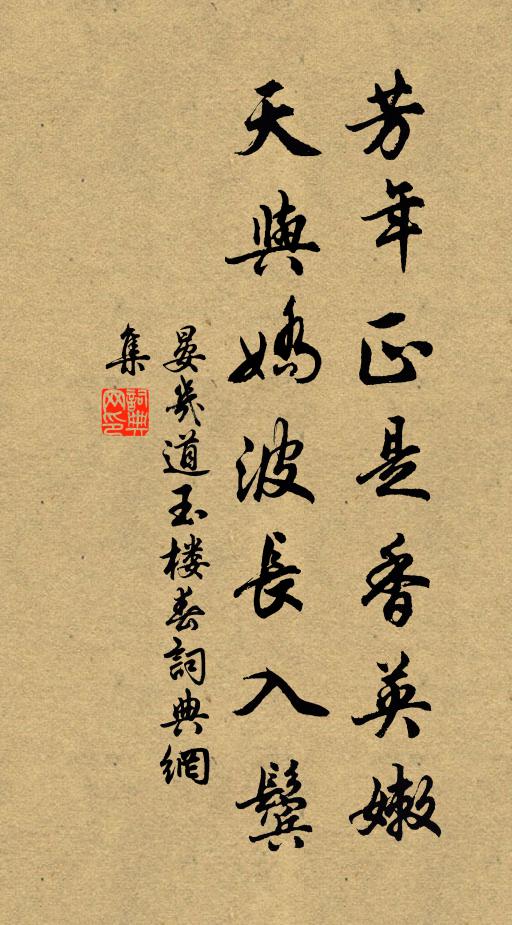 芳年正是香英嫩
天與嬌波長入鬢
晏幾道玉楼春詞典網
集
詞典
网印